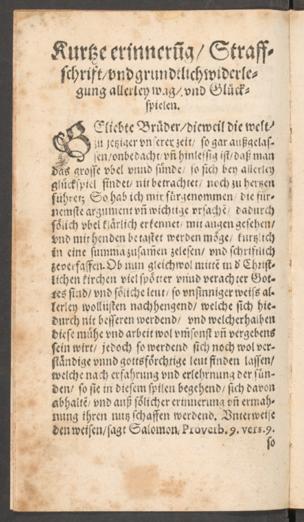 Kurtze erinnerũg/ Straff-
schrift/ vnd grundtlich widerle-
gung allerley wag/ vnd Glück-
spielen.
GEliebte Brüder/ dieweil die welt/
zu jetziger vnserer zeit/ so gar außgelas-
sen/ onbedacht/ vñ hinlessig ist/ daß man
das grosse vbel vnnd sünde/ so sich bey allerley
glückspiel findet/ nit betrachtet/ noch zu hertzen
führet: So hab ich mir fürgenommen/ die für-
nemste argument vñ wichtige vrsachẽ/ dadurch
sölich vbel klärlich erkennet/ mit augen gesehen/
vnd mit henden betastet werden möge/ kurtzlich
in eine summa zusamẽn zelesen/ vnd schriftlich
zeverfassen. Ob nun gleichwol mittẽ in ď Christ-
lichen kirchen viel spötter vnnd verachter Got-
tes sind/ vnd söliche leut/ so vnsinniger weiß al-
lerley wollüsten nachhengend/ welche sich hie-
durch nit besseren werdend/ vnd welcherhalben
diese mühe vnd arbeit wol vmsonst vñ vergebens
sein wirt/ jedoch so werdend sich noch wol ver-
ständige vnnd gottsförchtige leut finden lassen/
welche nach erfahrung vnd erlehrnung der sün-
den/ so sie in diesem spilen begehend/ sich davon
abhaltẽ/ vnd auß sölicher erinnerung vñ ermah-
nung ihren nutz schaffen werdend. Vnterweise
den weisen/ sagt Salomon, Proverb. 9. vers. 9.
so